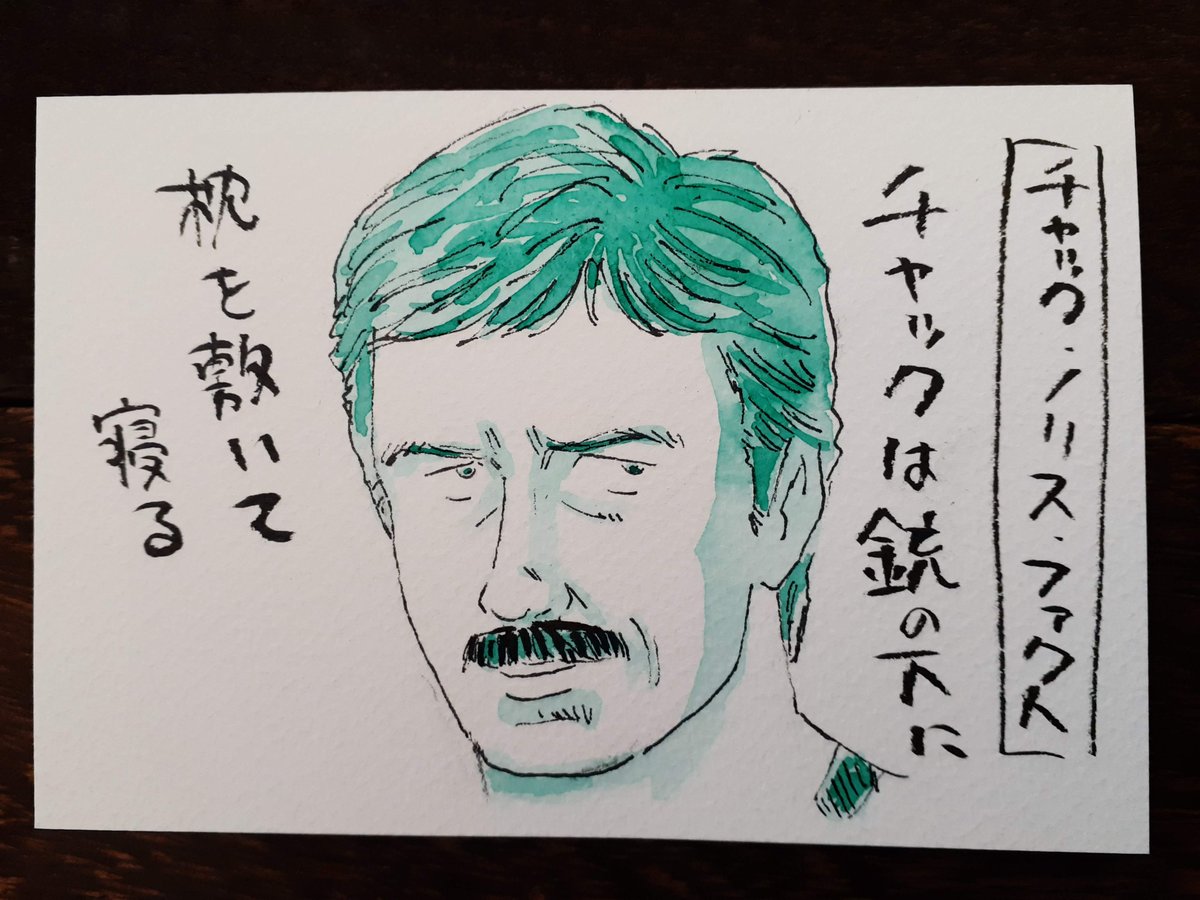 チャック・ノリス・ファクト
チャックは銃の下に
枕を敷いて
寝る